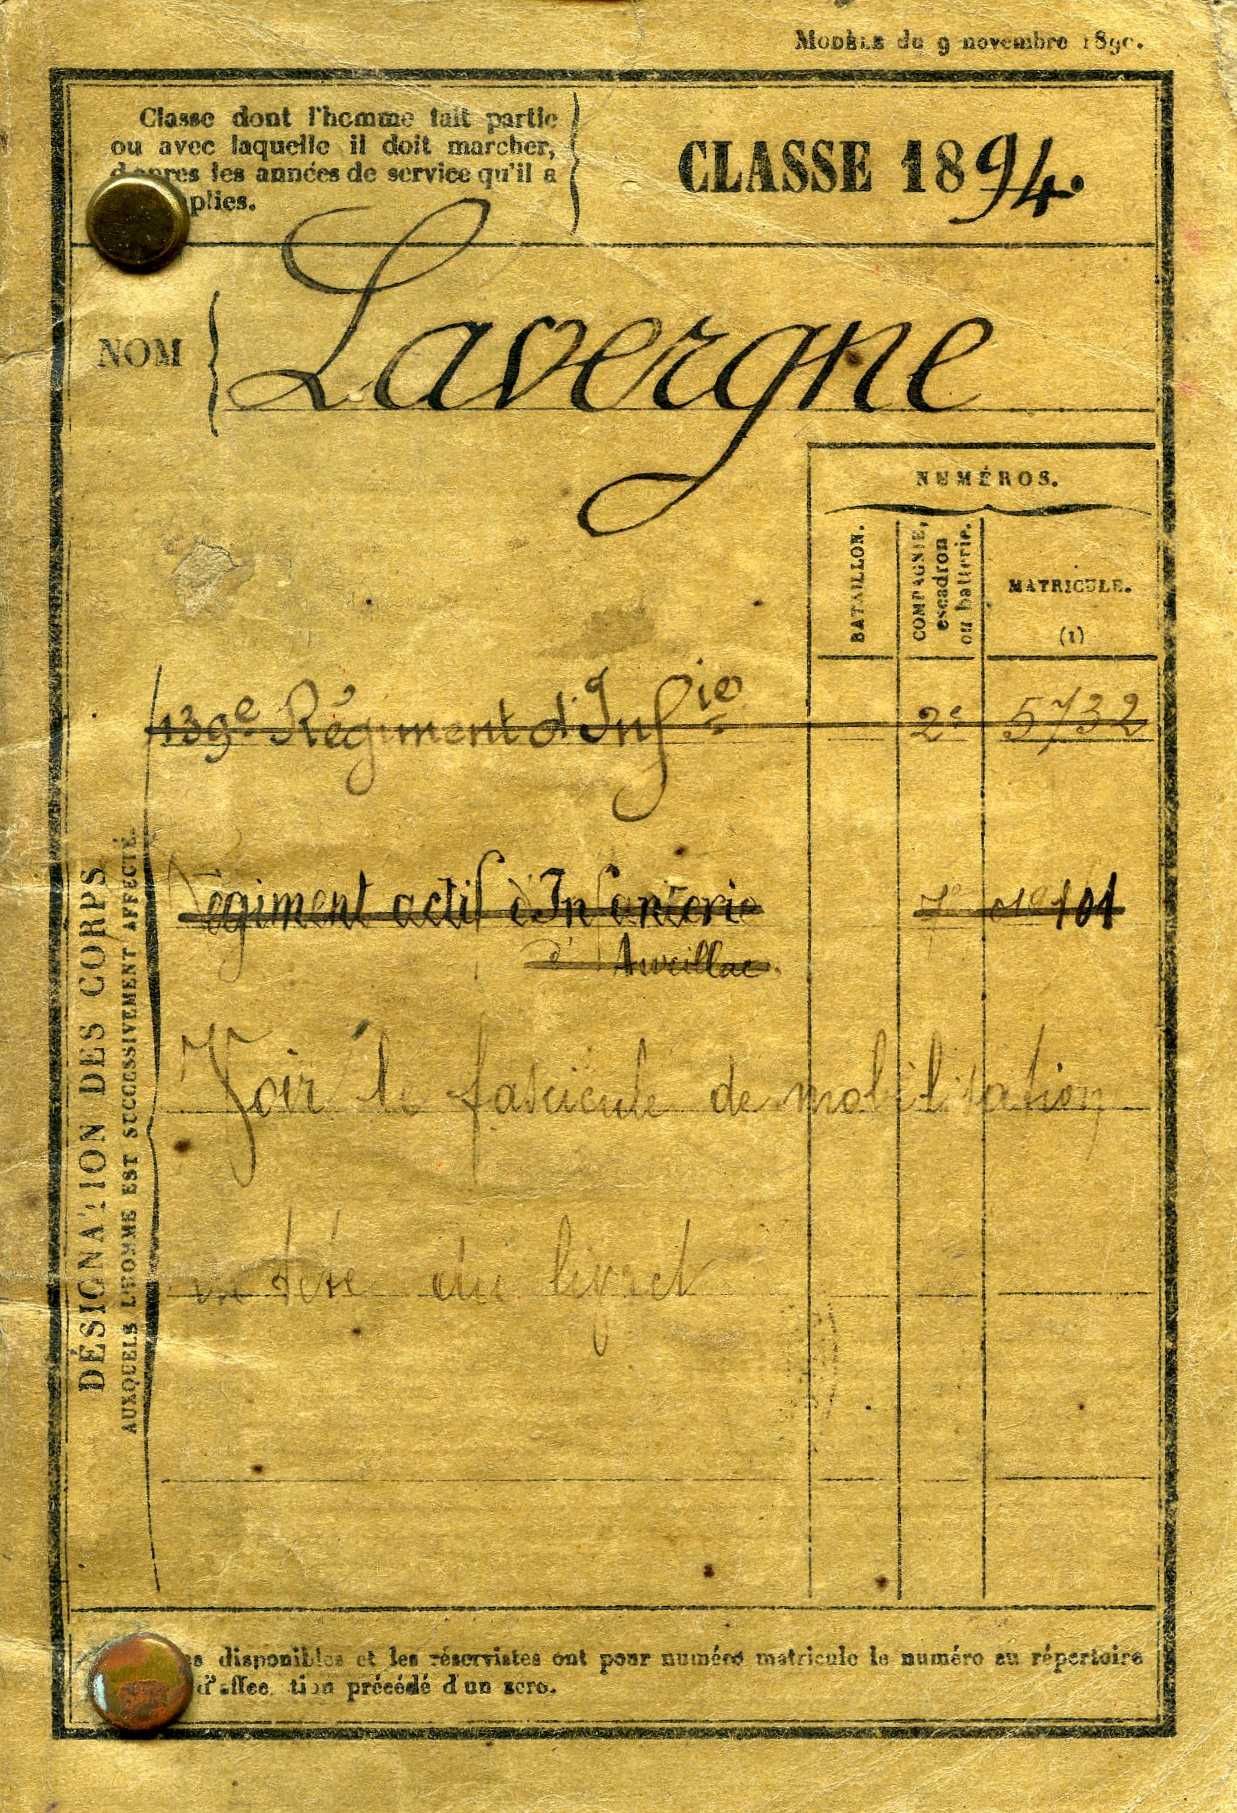 MODÈLE du 9 novembre 1890.
Classe dont l'homme fait partie
ou avec laquelle il doit marcher,
d'après les années de service qu'il a
plies.
CLASSE 1894.
NOM
Lavergne
NUMÉROS.
BATAILLON.
COMPAGNIE,
escadron
ou batterie.
MATRICULE.
(1)
DÉSIGNATION DES CORPS
AUXQUELS L'HOMME EST SUCCESSIVEMENT AFFECTÉ.
139e Régiment d'Infie 2e 5732
Régiment actif d'Infanterie 7e 101
d'Aurillac.
Voir le fascicule de mobilisation
en tête du livret
es disponibles et les réservistes ont pour numéro matricule le numéro au répertoire
d'affectation précédé d'un zéro.